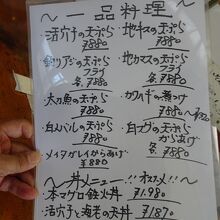 〜 一品料理 〜
・活穴子の天ぷら
¥880
・釣りアジの天ぷら
フライ
各 ¥880
・太刀魚の天ぷら
¥880
・白バイの天ぷら
¥880
・メイタガレイからあげ
¥880
・地キスの天ぷら
¥880
・地カマスの天ぷら
フライ
各 ¥880
・カワハギの煮つけ
¥880〜
の天ぷら
からあげ
各 ¥880
〜 丼メニュー!! オススメ!! 〜
・本マグロ鉄火丼 ¥1,980
・活穴子と海老の天丼 ¥1,870